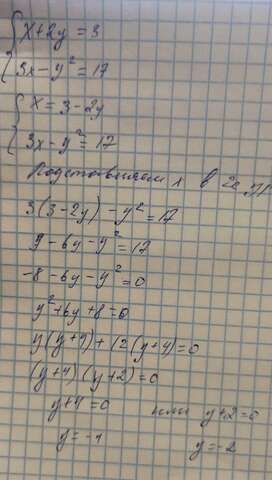 x+2y = 3
3x-y² = 17
x = 3-2y
3x-y² = 17
Подставляем x в 2е ур
3(3-2y) -y² = 17
9 - 6y - y² = 17
-8 - 6y - y² = 0
y²+6y+8=0
y(y+4)+(2(y+4)=0
(y+4) (y+2)=0
y+4=0 или y+2=0
y=-4 y=-2